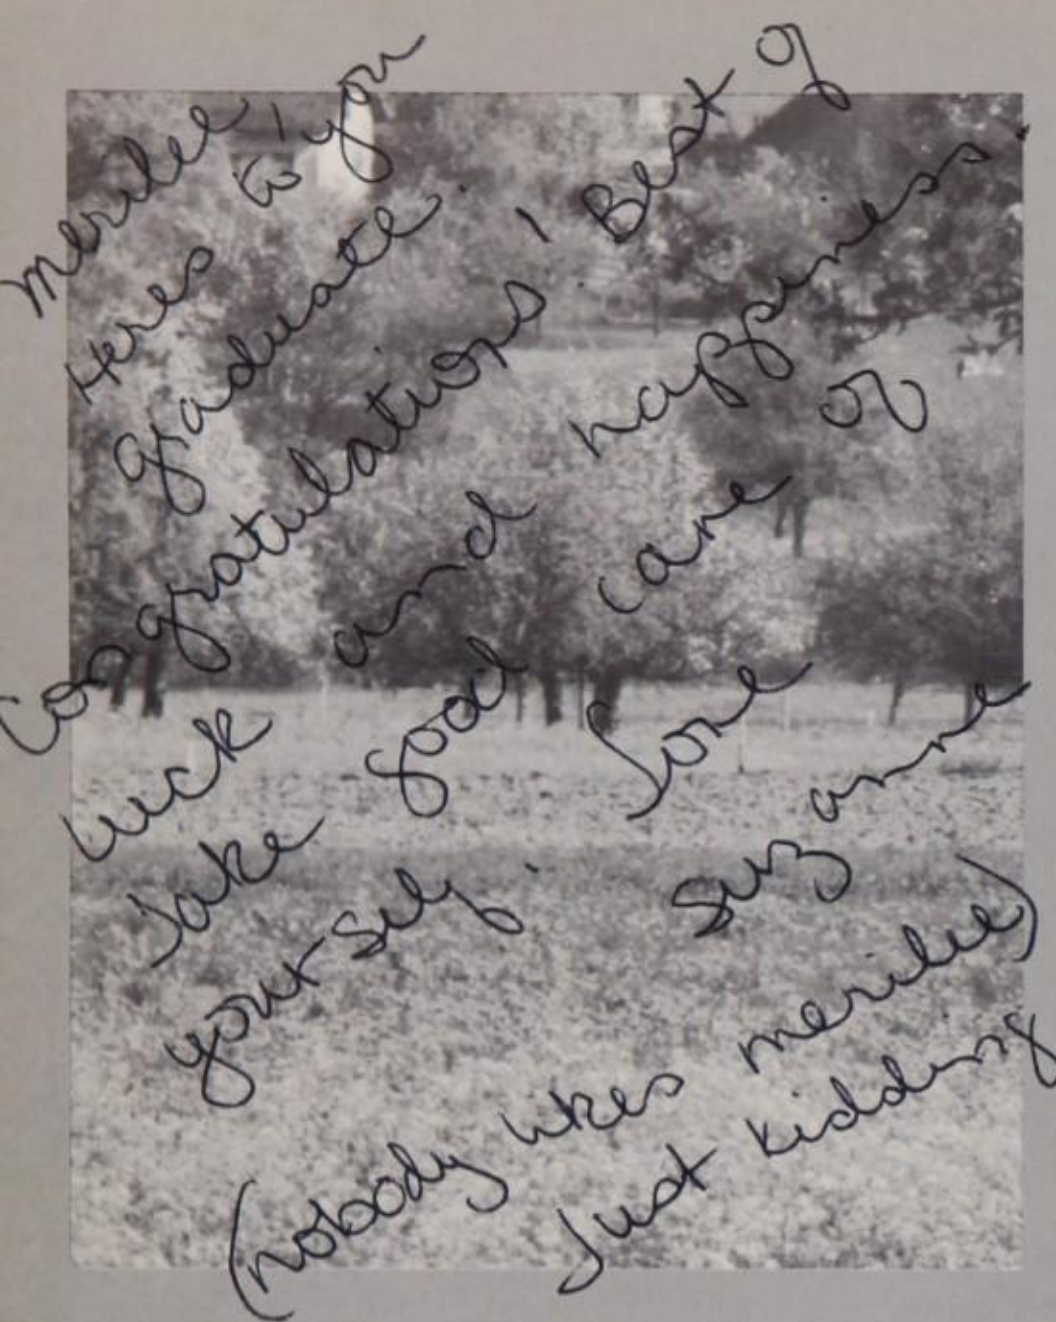 Merilee,
Heres to you
graduate.
Congratulations! Best of
luck and happiness.
Take good care of
your self. Love
Suzanne
(nobody likes merilee)
Just kidding